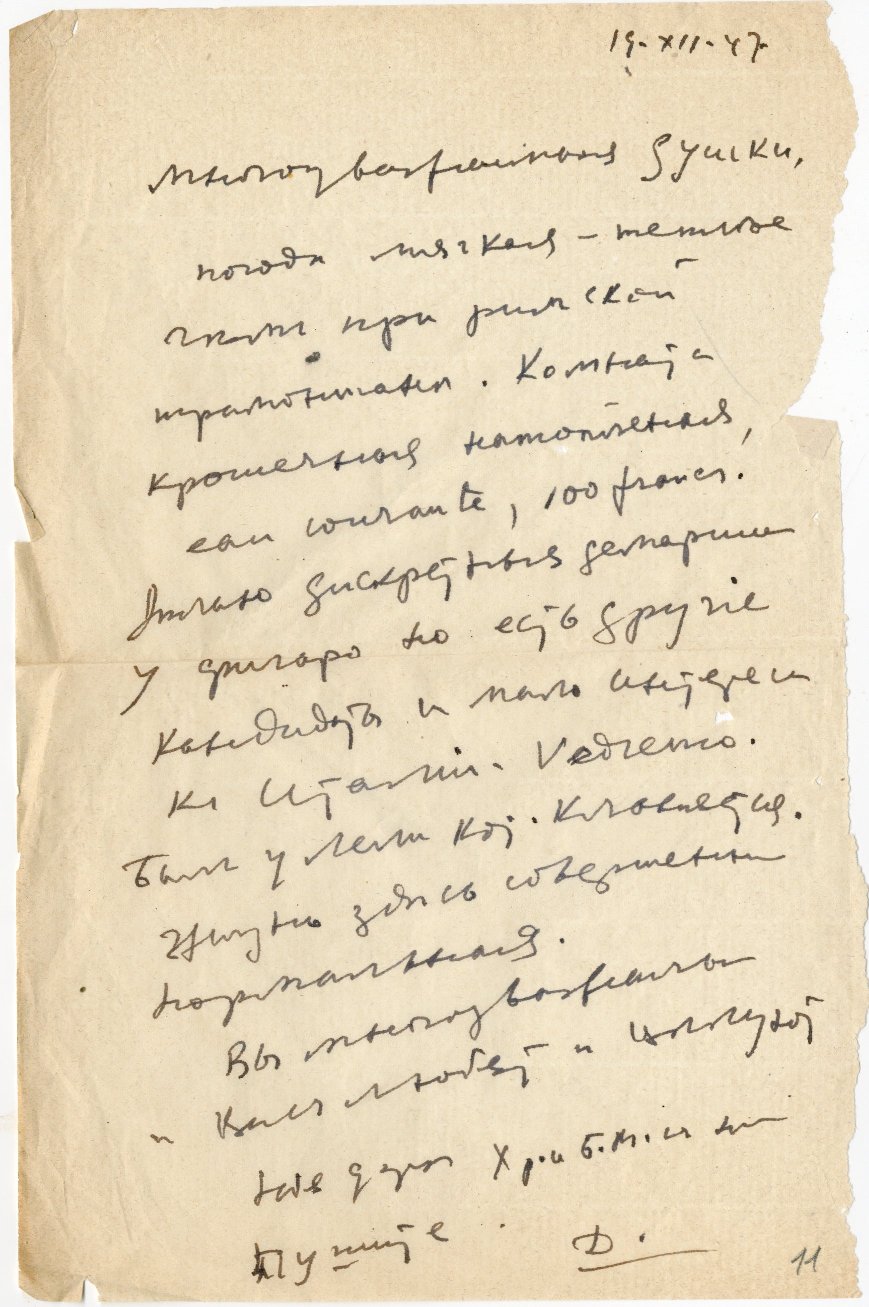 19-XII-47.
Многоуважаемыя душки,
погода мягкая – теплые
при римской
трамонтане. Комната
крошечная натопленная,
eau courante, 100 francs.
Дѣлаю дискретныя демарши
у Фигаро но есть другіе
кандидаты и мало интереса
къ Италіи. Vedremo.
Былъ у Лели кот. кланяется.
Жизнь здѣсь совершенно
нормальная.
Вы многоуважаемы
и Васъ любят и цѣлуют
Хр. и Б. М. съ
Пушите
Д.
11